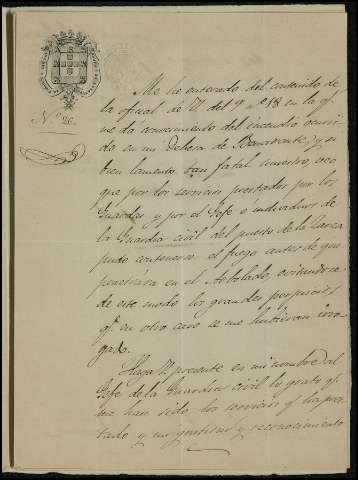 Nº 26.
Me he enterado del contenido de
la oficial de V. del 9 nº 18 en la q.
me da conocimiento del incendio ocurri-
do en mi Dehesa de Benavente, y si
bien lamento tan fatal suceso, veo
que por los servicios prestados por los
Guardas y por el Jefe é individuos de
la Guardia civil del puesto de la
pudo contenerse el fuego antes de que
penetrase en el Arbolado, evitandose
de este modo los grandes perjuicios
q. en otro caso se me hubieran irro-
gado.
Haga V. presente en mi nombre al
Jefe de la Guardia civil lo grato q.
me han sido los servicios q. ha pres-
tado y mi gratitud y reconocimiento